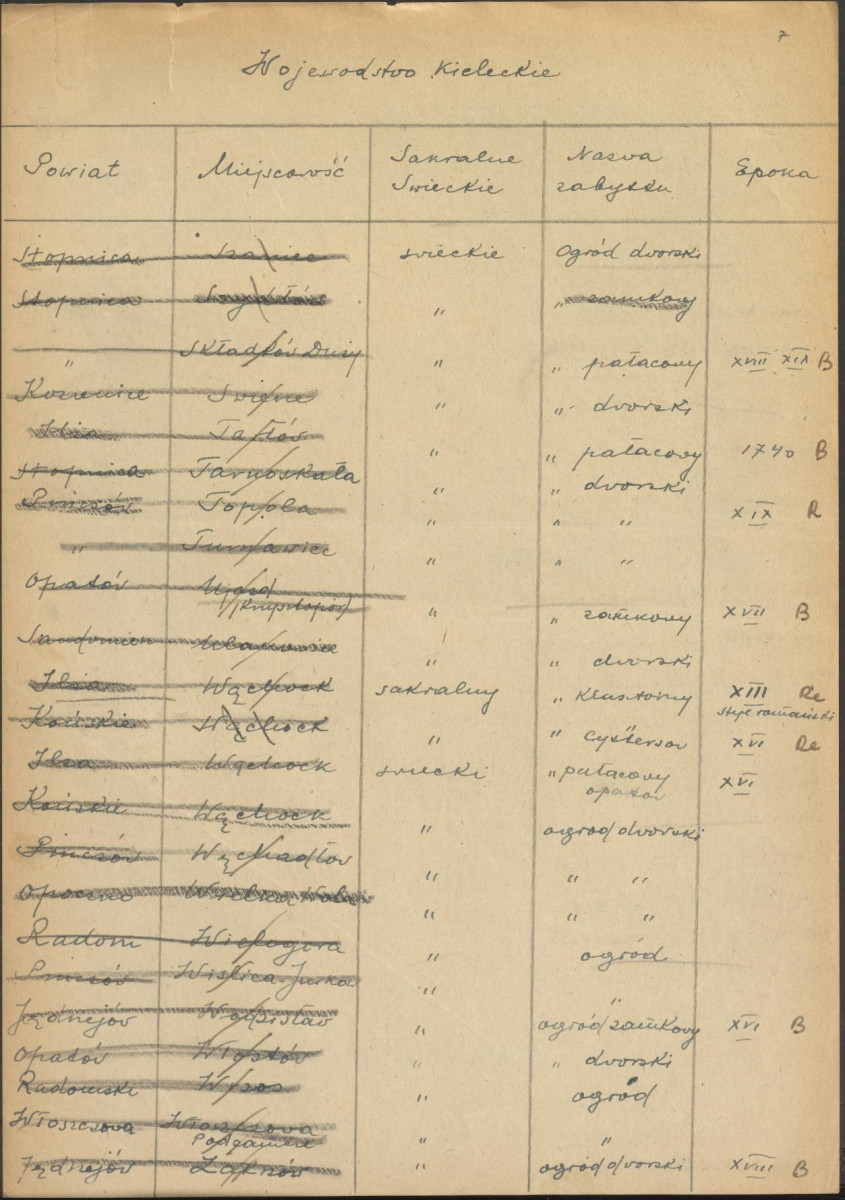 7
Wojewodstvo Kieleckie
Powiat Miejscowość Sakralne Swieckie Nazva zabytku Epoka
Stopnica Szaniec svieckie Ogród dvorski
Stopnica " " zamkovy
" Składków Duży " " pałacovy XVIII XIX B
Kozienice " " dvorski
Iłża Tafłóv " " pałacovy 1740 B
Stopnica Tarnoskała " " dvorski
Pińczóv Topola " " " XIX R
" Turnawiec " " "
Opatóv Ujazd (Krzyżtopór) " " zamkovy XVII B
Sandomierz " " dvorski
Iłża Wąchock sakralny " Klasztorny XIII Re
styl romański
Końskie Wąchock " " cystersov XVI Re
Iłża Wąchock sviecki " pałacovy opatov XVI
Końskie Wąchock " ogród dvorski
Pińczóv Węchadłov " " "
Opoczno Wielka Wola " " "
Radom Wielogóra " ogród
Pińczóv Wiślica Jurkov " "
Jędrzejóv Wodzisłav " ogród zamkovy XVI B
Opatóv Włostóv " " dvorski
Radomski Wsos " ogród
Włoszczova Włoszczova Podzamcze " "
Jędrzejóv " ogród dvorski XVIII B